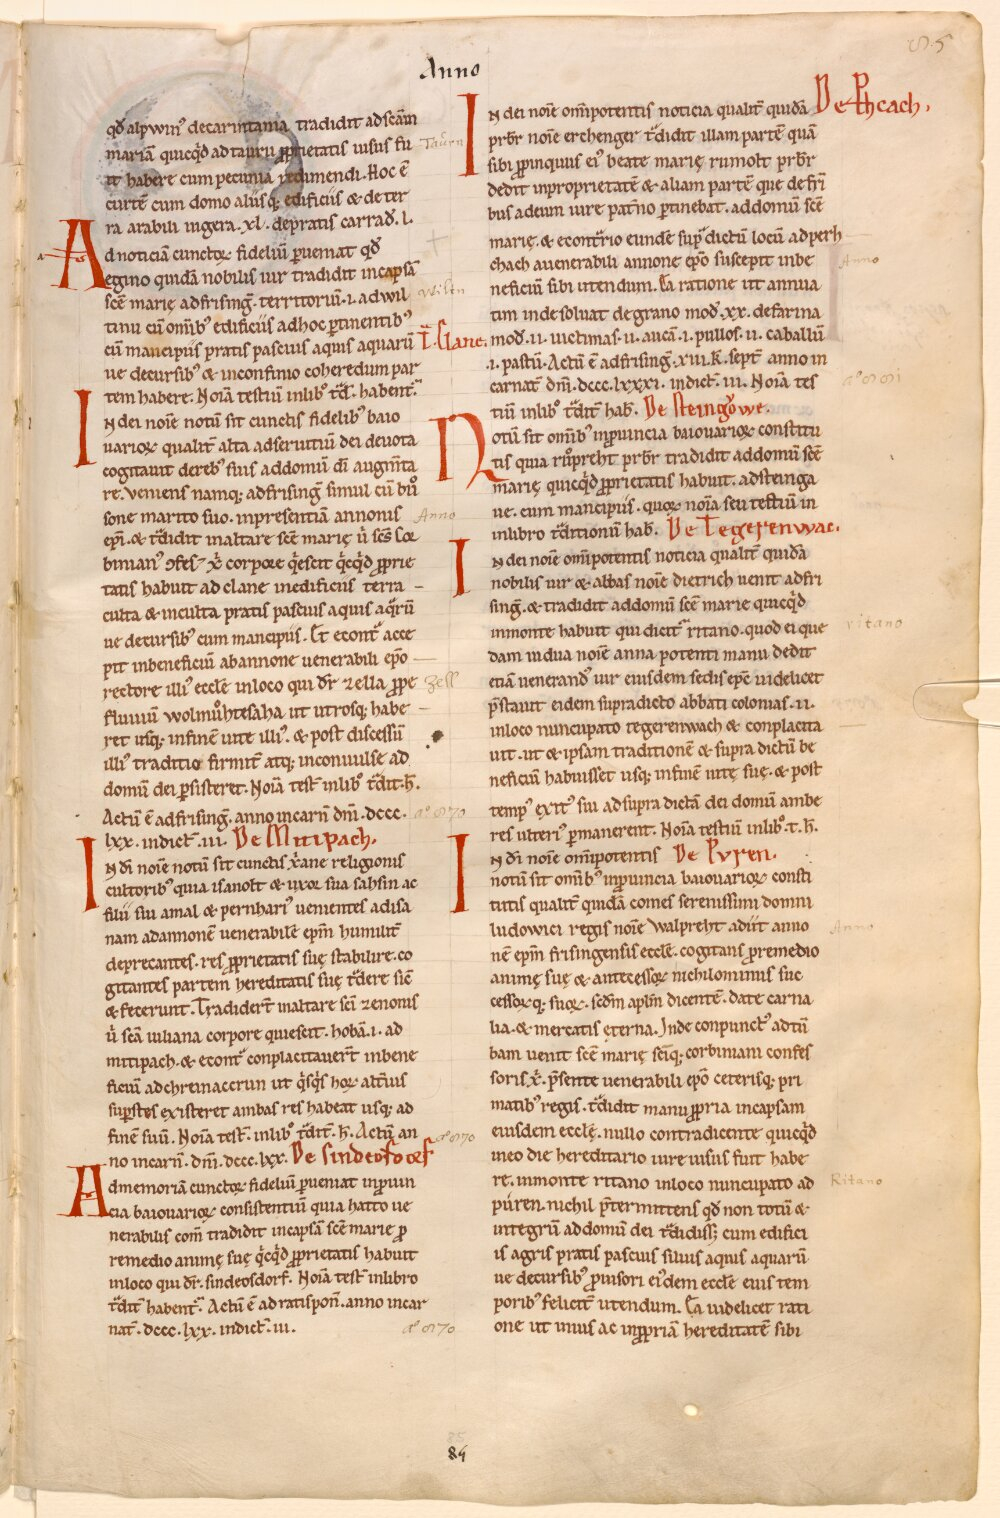 Anno
qđ alpwin᷒ decarintania tradidit adscām
mariā quicq̇d ad taurū ꝓprietatis uisus fu
it habere cum pecunia redimendi. Hoc ē
curtē cum domo aliisq; edificiis & de ter
ra arabili iugera. xl. de pratis carrađ. l.
Ad noticiā cunctoꝝ fidelium ꝑueniat qđ
egino quidā nobilis uir tradidit in capsā
scē marię adfrising̃. territoriū. i. ad wil
tinu cū om̄ib᷒ edificiis ad hoc ꝑtinentib᷒
cū mancipiis pratis pascuis aquis aquarū
ue decursib᷒ & in confinio coheredum par
tem habere. Noīa testiū in lib᷒ t̄d̄. habent᷑.
I. Clane.
In dei noīe notū sit cunctis fidelib᷒ baio
uarioꝝ qualit̄ alta ad seruitiū dei deuota
cogitauit de reb᷒ suis ad domū dī augm̄ta
re. Veniens namq; adfrising̃ simul cū bů
sone marito suo. in presentiā annonis
ep̄i. & t̄didit in altare scē marię ů scs̄ Cor
binian᷒ ɔfes᷒ x̄ corpore q̇escit q̇cq̇d ꝓprie
tatis habuit ad clane in edificiis terra
culta & inculta pratis pascuis aquis aq̄rū
ue decursib᷒ cum mancipiis. Et econt᷑ acce
pit in beneficiū ab annone uenerabili ep̄o
rectore illi᷒ ecclē in loco qui dr̄ zella ꝓpe
fluuiū wolmůhtesaha ut utrosq; habe
ret usq; in finē uite illi᷒. & post discessū
illi᷒ traditio firmit̄ atq; inconuulse ad
domū dei ꝑsisteret. Noīa test̄ in lib᷒ t̄dit. h̄.
Actū ē adfrising̃. anno incarn̄ dnī. dccc.
lxx. indict̄. iii. De Mitipach.
In dī noīe notū sit cunctis x̄ane religionis
cultorib᷒ quia isanolt & uxor sua sahsin ac
filii sui amal & pernhari᷒ uenientes ad isa
nam ad annonē uenerabilē ep̄m humilit̄
deprecantes. res ꝓprietatis suę stabilire. co
gitantes partem hereditatis suę t̄dere sic̄
& fecerunt. Tradider̄t in altare scī zenonis
ů scā iuliana corpore quiescit. hobā. i. ad
mitipach. & econt᷑ conplacitauer̄t in bene
ficiū ad chreinaccrun ut q̇sq̇s hoꝝ alt̄ius
supstes existeret ambas res habeat usq; ad
finē suū. Noīa test̄. in lib᷒ t̄dit̄. h̄. Actū an
no incarn̄. dnī. dccc. lxx. De sindeosdorf
Ad memoriā cunctoꝝ fidelium ꝑueniat in ꝓuin
cia baiouarioꝝ consistentiū quia hatto ue
nerabilis com̄ tradidit in capsā scē marie ꝓ
remedio animę suę q̇cq̇d ꝓprietatis habuit
in loco qui dr̄. sindeosdorf. Noīa test̄ in libro
t̄dit̄ habent᷑. Actū ē ad ratispon̄. anno incar
nat̄. dccc. lxx. indict̄. iii.
De Phcach.
In dei noīe om̄ipotentis noticia qualit̄ quidā
prbr̄ noīe erchenger t̄didit illam partē quā
sibi ꝓpinquus ei᷒ beate marię rumolt prbr̄
dedit in proprietatē & aliam partē que de fr̄i
bus ad eum iure pat̄no ꝑtinebat. ad domū scē
marię. & econt̄rio eundē sup᷑dictū locū ad perh
chach a uenerabili annone ep̄o suscepit in be
neficiū sibi utendum. Ea ratione ut annua
tim inde soluat de grano mod᷒. xx. de farina
mod̄. ii. uictimas. ii. aucā. i. pullos. ii. caballū
.i. pastū. Actū ē adfrising̃. xiii. K̄. sept̄. anno in
carnat̄ dnī. dccc. lxxxi. indict̄. iii. Noīa tes
tiū in lib᷒ t̄dit̄ hab̄. De steingowe.
Notū sit om̄ib᷒ in ꝓuincia baiouarioꝝ constitu
tis quia růpreht prbr̄ tradidit ad domū scē
marię quicq̇d ꝓprietatis habuit. ad steinga
ue. cum mancipiis. quoꝝ noīa seu testiū in
in libro t̄ditionū hab̄. De Tegerenwac.
In dei noīe om̄ipotentis noticia qualit̄ quidā
nobilis uir & abbas noīe dietrich uenit adfri
sing̃. & tradidit ad domū scē marie quicq̇d
in monte habuit qui dicit᷑ ritano. quod ei que
dam uidua noīe anna potenti manu dedit
etiā uenerand᷒ uir eiusdem sedis ep̄c uidelicet
p̄stauit eidem supradicto abbati colonias. ii.
in loco nuncupato tegerenwach & conplacita
uit. ut & ipsam traditionē & supra dictū be
neficiū habuisset usq; in finē uitę suę. & post
temp᷒ exit᷒ sui ad supra dictā dei domū ambe
res ulteri᷒ ꝑmanerent. Noīa testiū in lib᷒. t. h̄.
In dī noīe om̄ipotentis De Pyren.
notū sit om̄ib᷒ in ꝓuincia baiouarioꝝ consti
tutis qualit̄ quidā comes serenissimi domni
ludowici regis noīe Walpreht adiit anno
nē ep̄m frisingensis ecclē. cogitans ꝓ remedio
animę suę & antecessoꝝ nichilominus suc
cessoꝝq; suoꝝ. scd̄m aplm̄ dicentē. date carna
lia. & mercatis eterna. Inde conpunct᷒ ad tū
bam uenit scē marię scīq; corbiniani confes
soris x̄. p̄sente uenerabili ep̄o ceterisq; pri
matib᷒ regis. t̄didit manu ꝓpria in capsam
eiusdem ecclę. nullo contradicente quicq̇d
in eo die hereditario iure uisus fuit habe
re. in monte ritano in loco nuncupato ad
půren. nichil p̄termittens qđ non totū &
integrū ad domū dei t̄didiss; cum edifici
is agris pratis pascuis siluis aquis aquarū
ue decursib᷒ ꝓuisori ei᷒dem ecclē eius tem
porib᷒ felicit̄ utendum. Ea uidelicet rati
one ut unius ac in ꝓpriam hereditatē sibi
Taurn
Wiltin
Anno
Zell
aº 870
aº 870
aº 870
Anno
ritano
Anno
Ritano
85
84